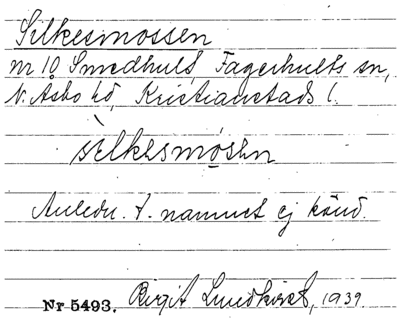 Silkesmossen
nr 10 Smedhult, Fagerhults sn,
N. Åsbo hd, Kristianstads l.
sèlkesmosen
Anledn. t. namnet ej känd.
Nr 5493. Birgit Lundkvist, 1939